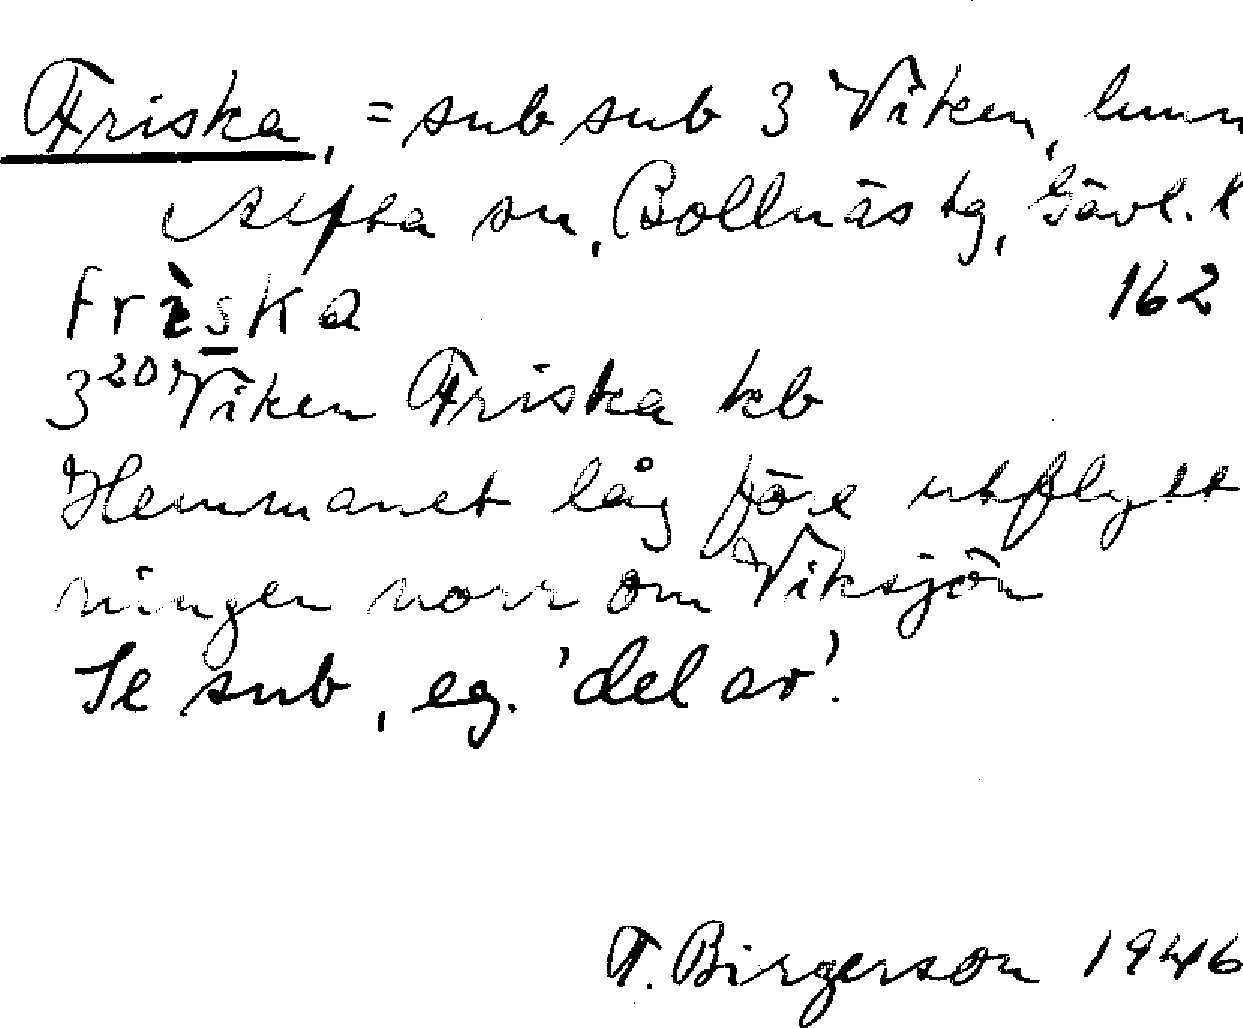 Friska, = sub sub 3 Viken, hmn
Alfta sn, Bollnäs tg, Gävl. l
frìska 162
3²⁰ Viken Friska kb
Hemmanet låg före utflytt
ningen norr om Viksjön
Se sub, eg. 'del av'.
F. Birgerson 1946